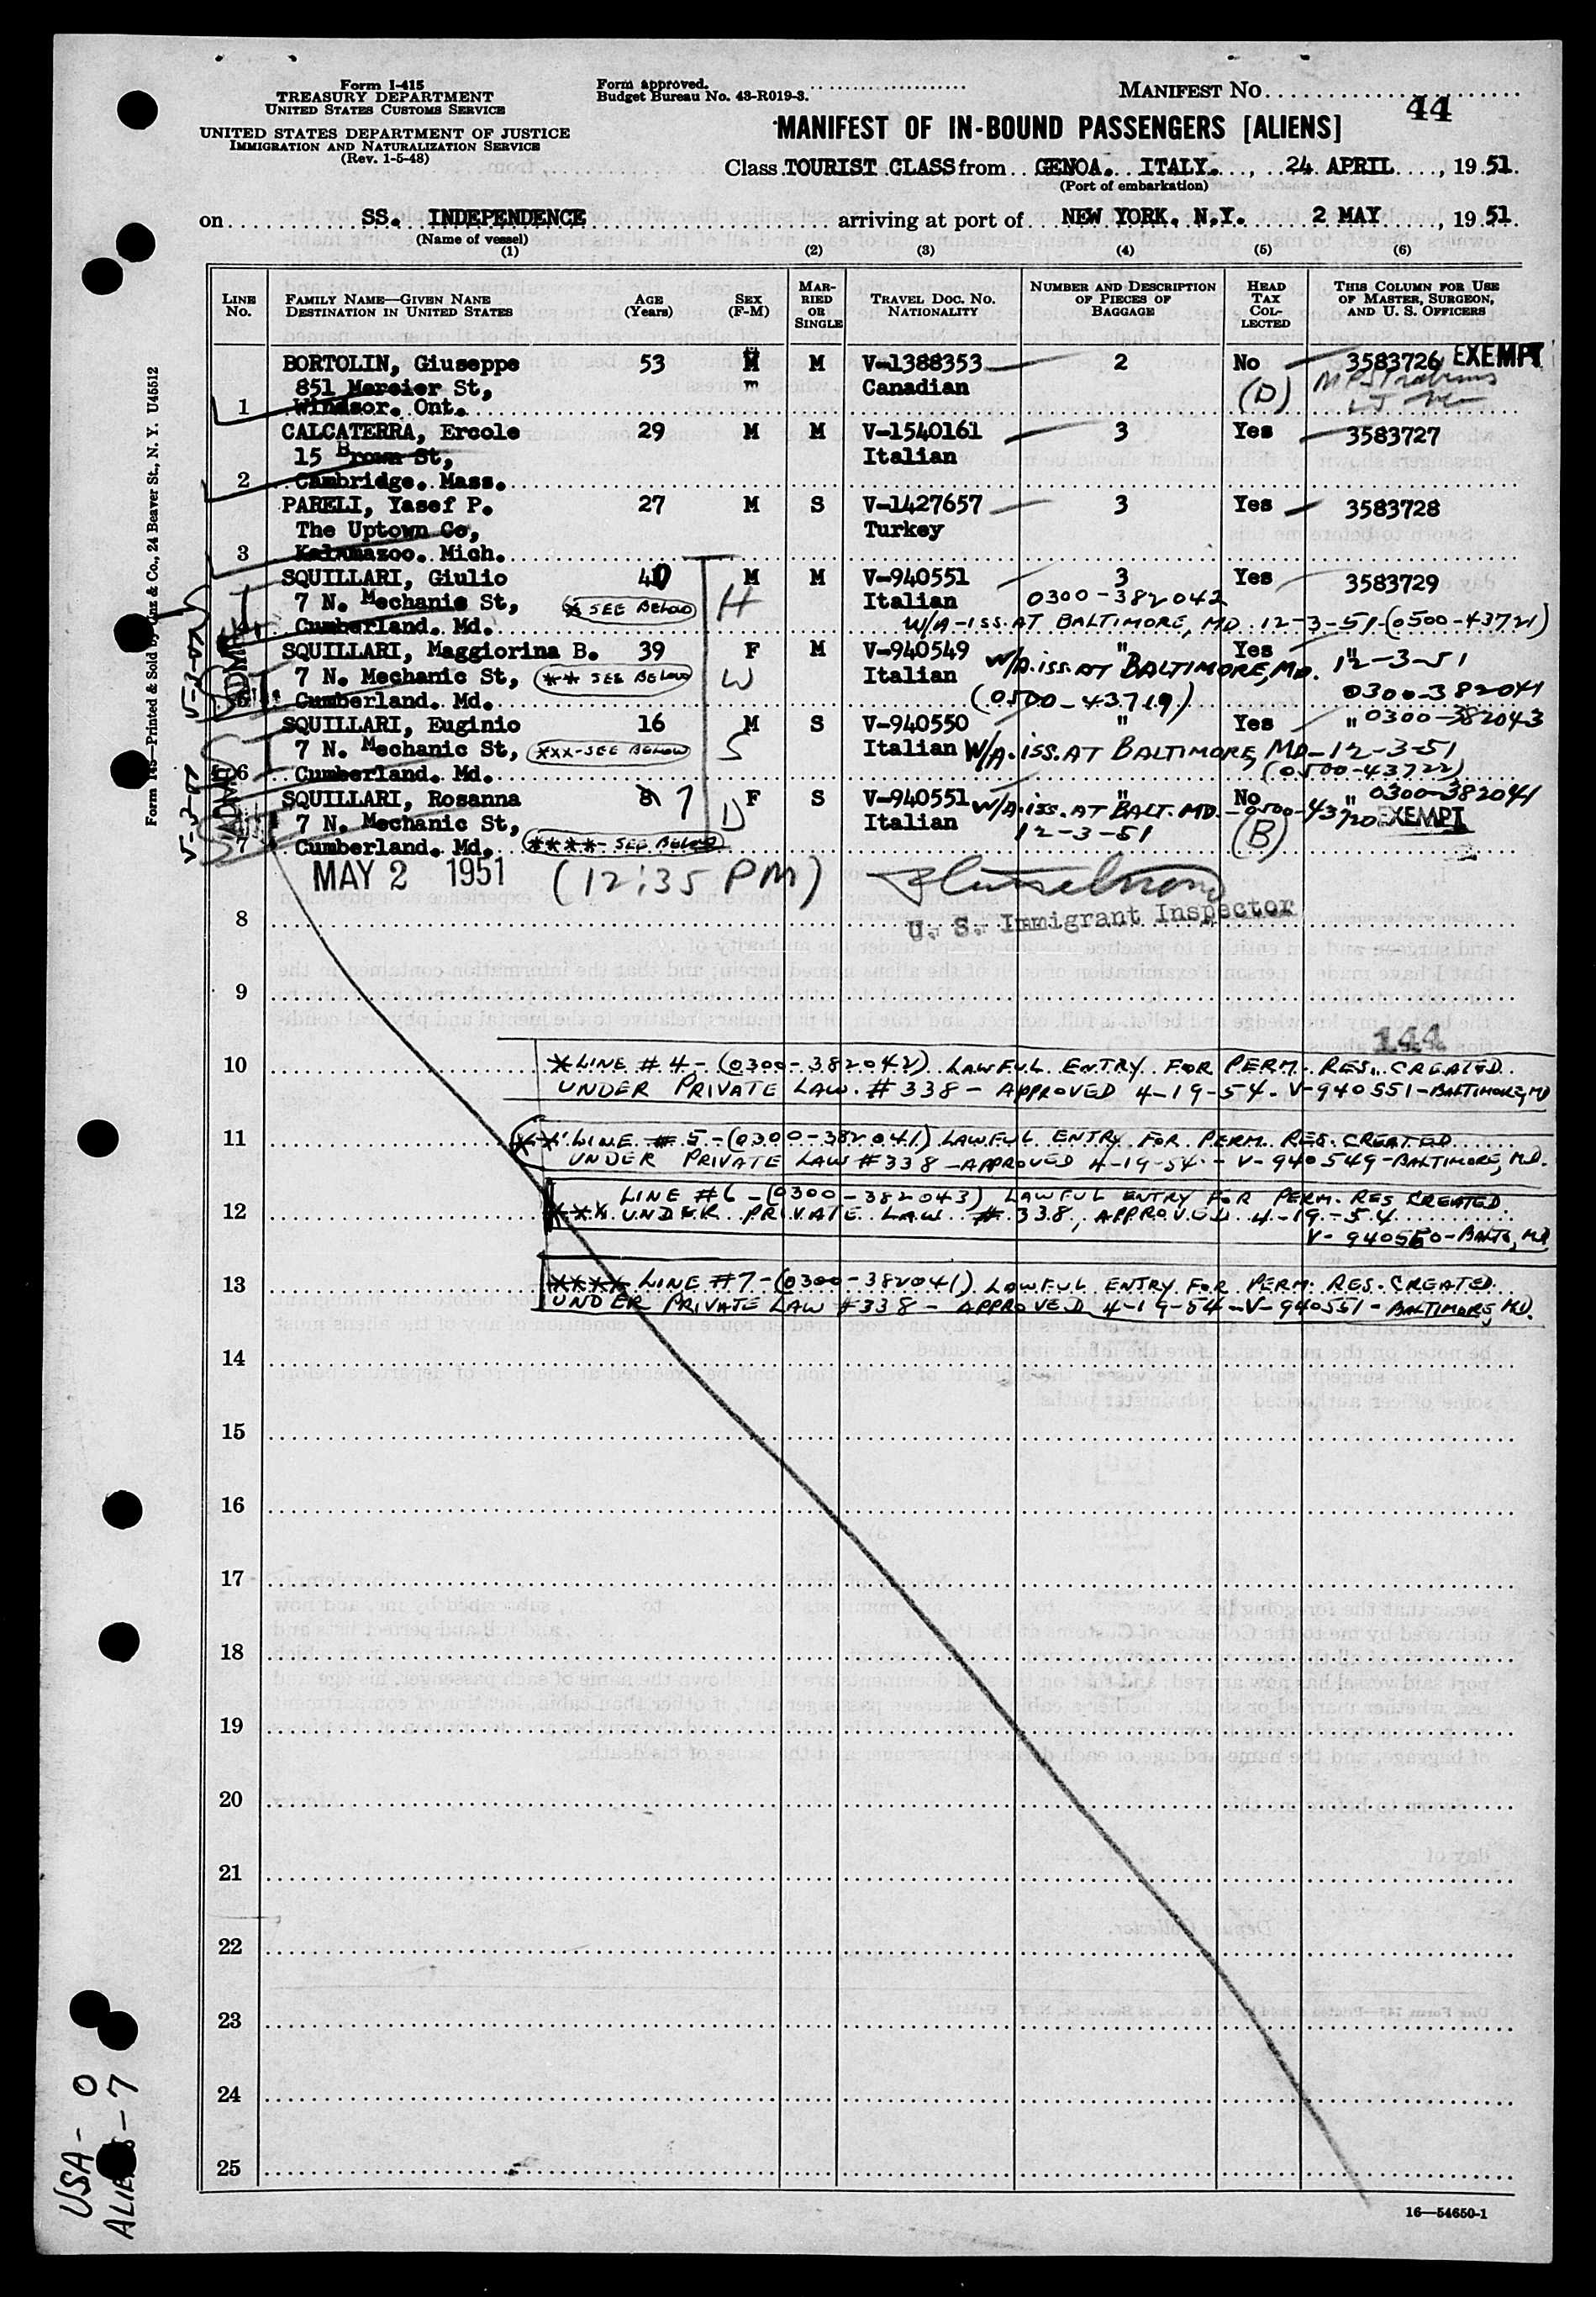 Form I-415
TREASURY DEPARTMENT
UNITED STATES CUSTOMS SERVICE
UNITED STATES DEPARTMENT OF JUSTICE
IMMIGRATION AND NATURALIZATION SERVICE
(Rev. 1-5-48)
Form approved.
Budget Bureau No. 43-R019-3.
MANIFEST NO.
44
MANIFEST OF IN-BOUND PASSENGERS [ALIENS]
Class TOURIST CLASS from GENOA. ITALY. , 24 APRIL , 19 51.
(Port of embarkation)
on SS. INDEPENDENCE arriving at port of NEW YORK. N.Y. 2 MAY , 19 51.
(Name of vessel)
(1) (2) (3) (4) (5) (6)
LINE No. FAMILY NAME—GIVEN NANE DESTINATION IN UNITED STATES AGE (Years) SEX (F-M) MARRIED OR SINGLE TRAVEL DOC. NO. NATIONALITY NUMBER AND DESCRIPTION OF PIECES OF BAGGAGE HEAD TAX COLLECTED THIS COLUMN FOR USE OF MASTER, SURGEON, AND U. S. OFFICERS
BORTOLIN, Giuseppe 53 M M V-1388353 2 No 3583726 EXEMPT
851 Mercier St, m Canadian (D)
1 Windsor. Ont.
CALCATERRA, Ercole 29 M M V-1540161 3 Yes 3583727
15 Brown St, Italian
2 Cambridge. Mass.
PARELI, Yasef P. 27 M S V-1427657 3 Yes 3583728
The Uptown Co, Turkey
3 Kalamazoo. Mich.
SQUILLARI, Giulio 40 M M V-940551 3 Yes 3583729
7 N. Mechanic St, * SEE BELOW H Italian 0300-382042
4 Cumberland. Md. W/A-ISS. AT BALTIMORE, MD. 12-3-51-(0500-43721)
SQUILLARI, Maggiorina B. 39 F M V-940549 " Yes "
7 N. Mechanic St, ** SEE BELOW W Italian W/A. ISS. AT BALTIMORE, MD. 12-3-51
5 Cumberland. Md. (0500-43719) 0300-382041
SQUILLARI, Euginio 16 M S V-940550 " Yes " 0300-382043
7 N. Mechanic St, XXX-SEE BELOW S Italian W/A. ISS. AT BALTIMORE, MD-12-3-51
6 Cumberland. Md. (0500-43722)
SQUILLARI, Rosanna 8 7 F S V-940551 " No " 0300-382041
7 N. Mechanic St, D Italian W/A. ISS. AT BALT. MD. -0500-43720 EXEMPT
7 Cumberland. Md. ****- SEE BELOW 12-3-51 (B)
MAY 2 1951 (12:35 PM)
U. S. Immigrant Inspector
8
9
144
10 * LINE #4-(0300-382042) LAWFUL ENTRY FOR PERM. RES. CREATED
UNDER PRIVATE LAW. #338 - APPROVED 4-19-54. V-940551-BALTIMORE, MD
11 ** LINE #5-(0300-382041) LAWFUL ENTRY FOR PERM. RES. CREATED
UNDER PRIVATE LAW #338-APPROVED 4-19-54 - V-940549-BALTIMORE, MD.
LINE #6-(0300-382043) LAWFUL ENTRY FOR PERM. RES CREATED
12 *XX UNDER PRIVATE LAW #338, APPROVED 4-19-54
V-940550-BALTO, MD
13 **** LINE #7-(0300-382041) LOWFUL ENTRY FOR PERM. RES. CREATED
UNDER PRIVATE LAW #338 - APPROVED 4-19-54-V-940551-BALTIMORE, MD.
14
15
16
17
18
19
20
21
22
23
24
25
16—54650-1
USA - 0
ALIENS - 7
24 Beaver St., N. Y. U45512